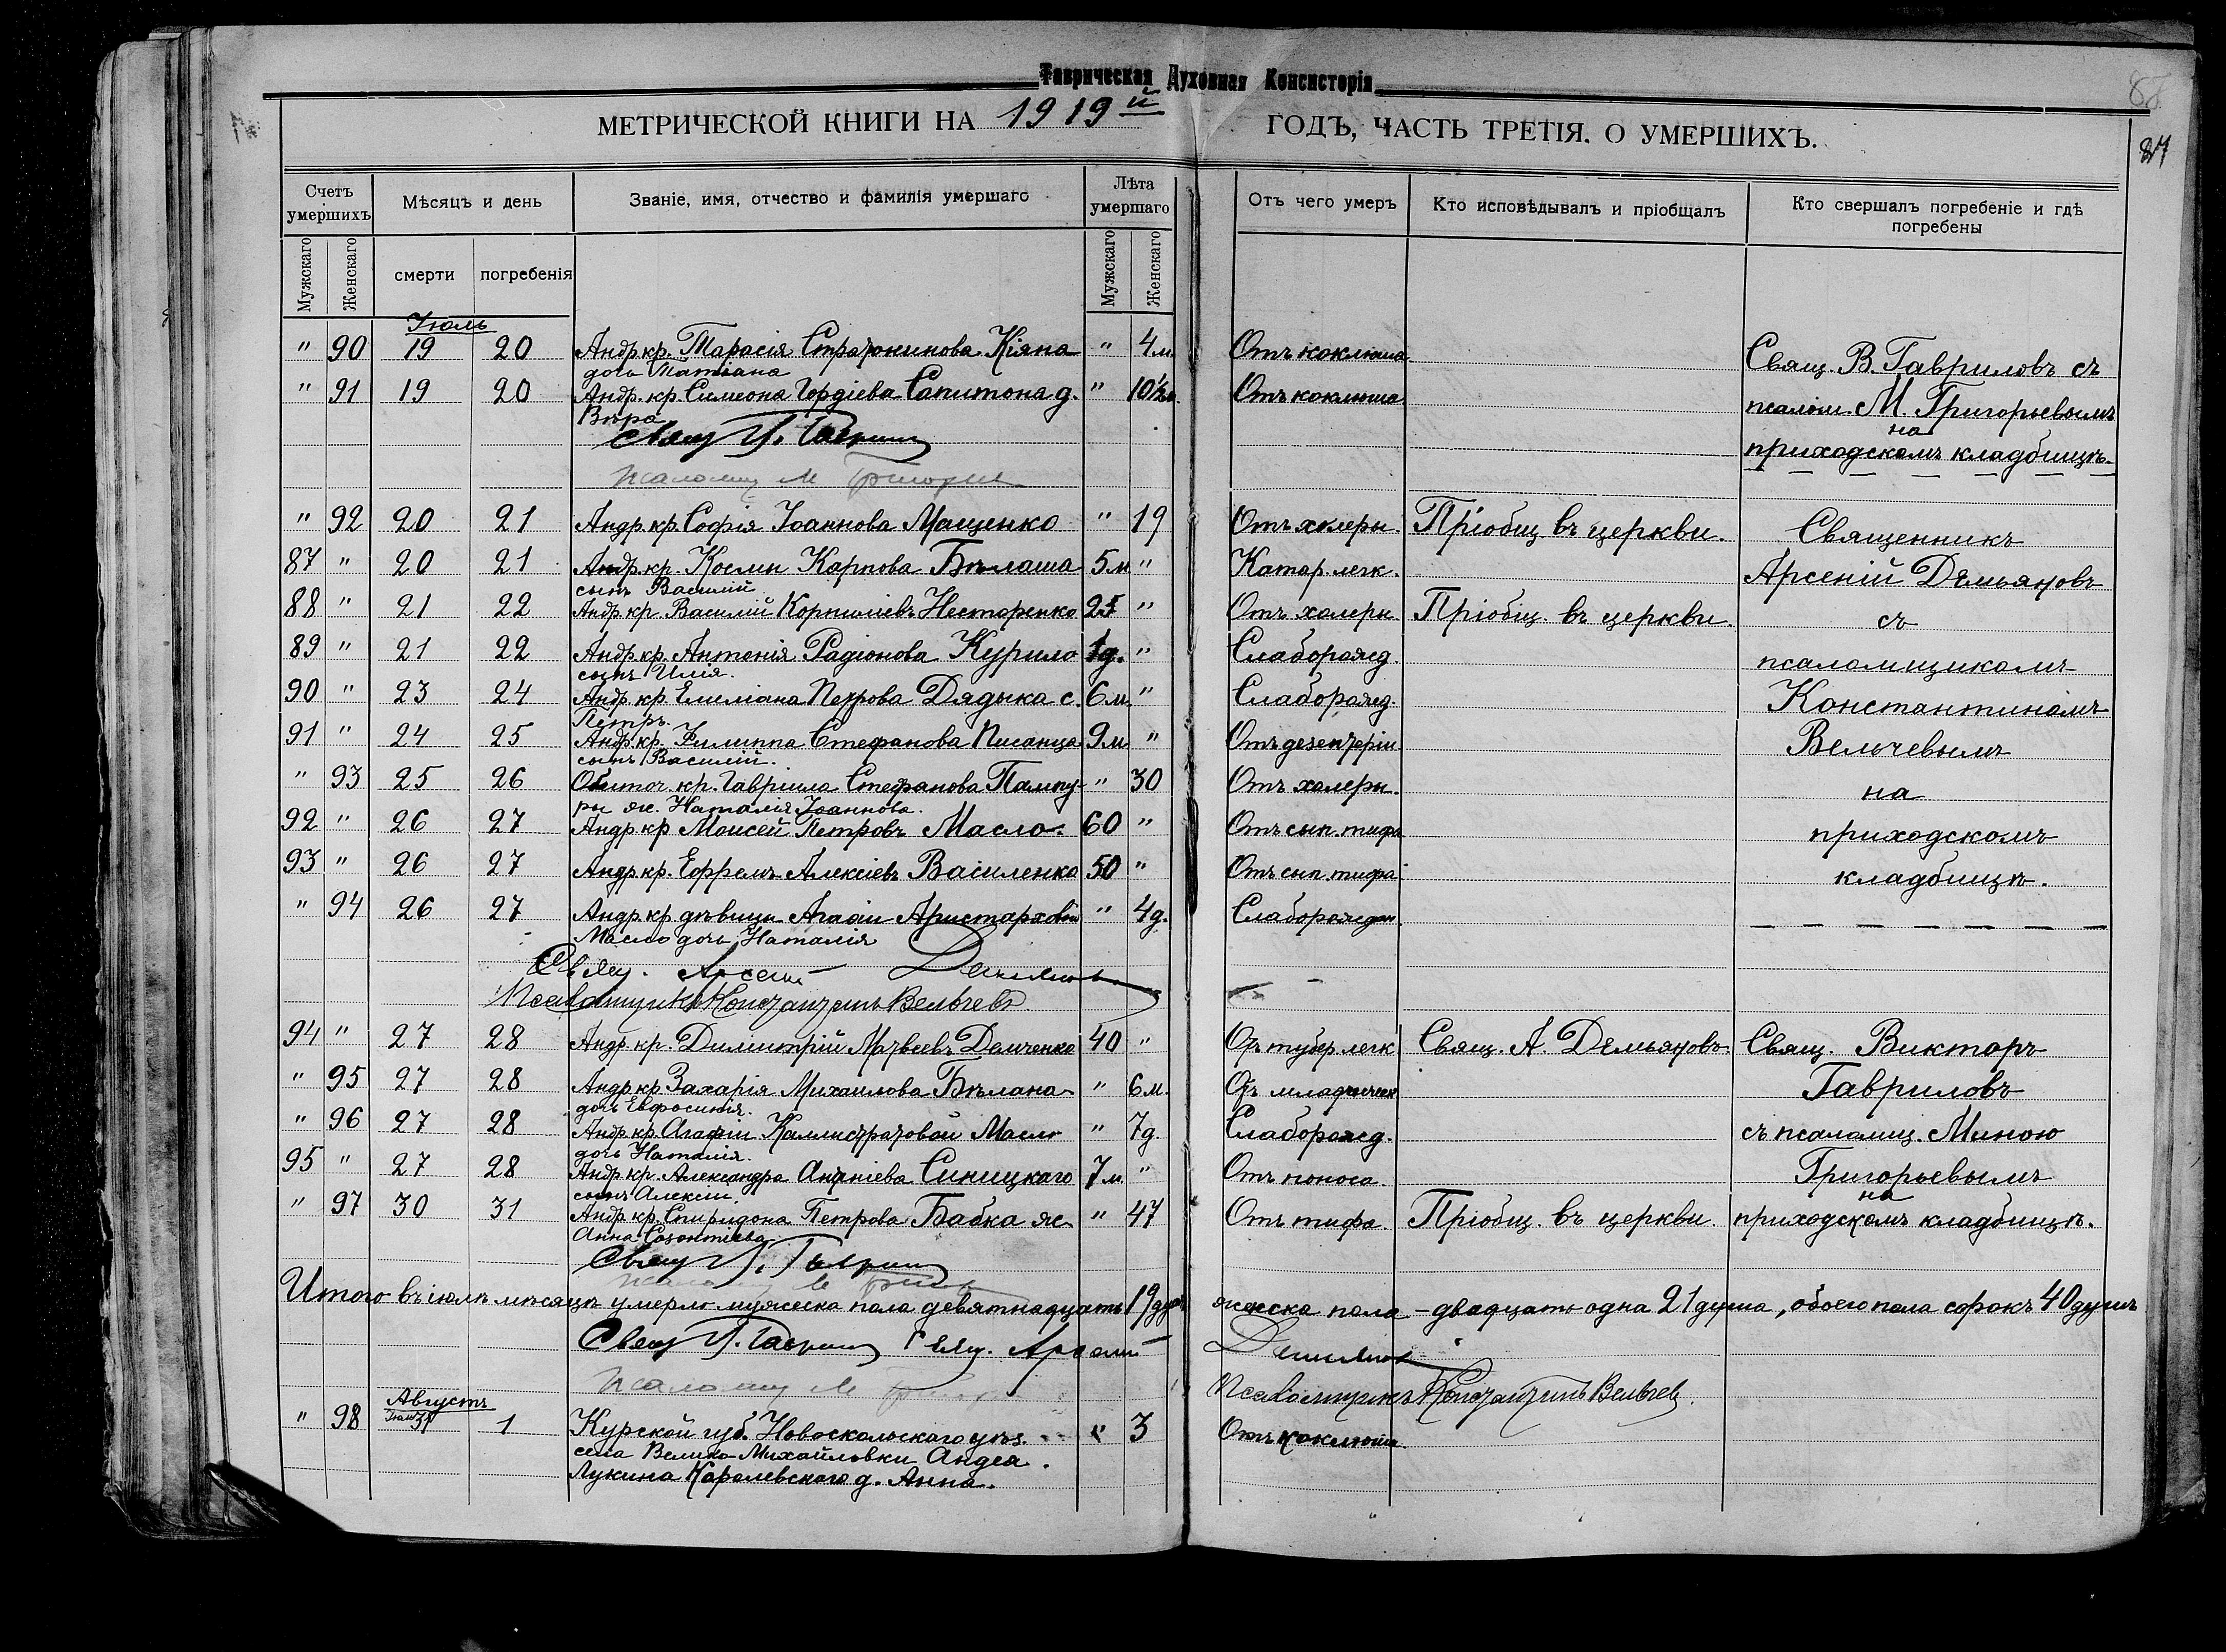 Таврическая Духовная Консисторія
88
МЕТРИЧЕСКОЙ КНИГИ НА 1919й ГОДЪ, ЧАСТЬ ТРЕТІЯ. О УМЕРШИХЪ.
87
Счетъ умершихъ Мѣсяцъ и день Званіе, имя, отчество и фамилія умершаго Лѣта умершаго Отъ чего умеръ Кто исповѣдывалъ и пріобщалъ Кто свершалъ погребеніе и гдѣ погребены
Мужскаго Женскаго смерти погребенія Мужскаго Женскаго
Іюль
" 90 19 20 Андр. кр. Тарасія Стратоникова Кіяна " 4 м. Отъ коклюша Свящ. В. Гавриловъ съ
дочь Татіана
" 91 19 20 Андр. кр. Симеона Гордіева Сапитона д. " 10½ Отъ коклюша псалом. М. Григорьевымъ
Вѣра
на
Свящ В. Гаврил приходскомъ кладбищѣ.
псаломщ М Григорьев
" 92 20 21 Андр. кр. Софія Іоаннова Мащенко " 19 Отъ холеры Пріобщ. въ церкви. Священникъ
87 " 20 21 Андр. кр. Космы Карпова Бѣлаша 5 м " Катар. легк. Арсеній Демьяновъ
сынъ Василій
88 " 21 22 Андр. кр. Василій Корниліевъ Нестеренко 25 " Отъ холеры Пріобщ. въ церкви. съ
89 " 21 22 Андр. кр. Антонія Радіонова Курило 1 д. " Слаборожд. псаломщикомъ
сынъ Илія.
90 " 23 24 Андр. кр. Емиліана Петрова Дядыка с. 6 м. " Слаборожд. Константиномъ
Петръ.
91 " 24 25 Андр. кр. Филиппа Стефанова Писанца 9 м " Отъ дезентеріи Вельчевымъ
сынъ Василій.
" 93 25 26 кр. Гавріила Стефанова Пампу- " 30 Отъ холеры. на
ры ж. Наталія Іоаннова.
92 " 26 27 Андр. кр Моисей Петровъ Масло. 60 " Отъ сып. тифа приходскомъ
93 " 26 27 Андр. кр. Ефремъ Алексіевъ Василенко 50 " Отъ сып. тифа кладбищѣ.
" 94 26 27 Андр. кр. дѣвицы Агафіи Аристарховой " 4 д. Слаборожден
Масло дочь Наталія
Свящ. Арсеній Демьянов
Псаломщикъ Константинъ Вельчевъ
94 " 27 28 Андр. кр. Димитрій Матвеевъ Демченко 40 " От тубер. легк Свящ. А. Демьяновъ. Свящ. Викторъ
" 95 27 28 Андр. кр. Захарія Михаилова Бѣлана " 6 м. От младенческ Гавриловъ
дочь Евфросинія.
" 96 27 28 Андр. кр. Агафіи Каллистратовой Масло " 7 д. Слаборожд. съ псаломщ. Миною
дочь Наталія.
95 " 27 28 Андр. кр. Александра Ананіева Синицкаго 7 м " Отъ поноса. Григорьевымъ
сынъ Алексій.
на
" 97 30 31 Андр. кр. Спиридона Петрова Бабка ж. " 47 Отъ тифа. Пріобщ. въ церкви. приходскомъ кладбищѣ.
Анна Созонтіева
Свящ В. Гаврил
Итого въ іюлѣ мѣсяцѣ умерло мужеска пола девятнадцать 19 душ женска пола – двадцать одна 21 душа, обоего пола сорокъ 40 душъ
Свящ В. Гаврил Свящ. Арсеній Демьянов
псаломщ М Псаломщикъ Константинъ Вельчев.
Августъ
" 98 Іюль 31 1 Курской губ. Новоскольскаго уѣз. " 3 Отъ коклюша
села Велико-Михайловки Андея
Лукина Каралевскаго д. Анна.